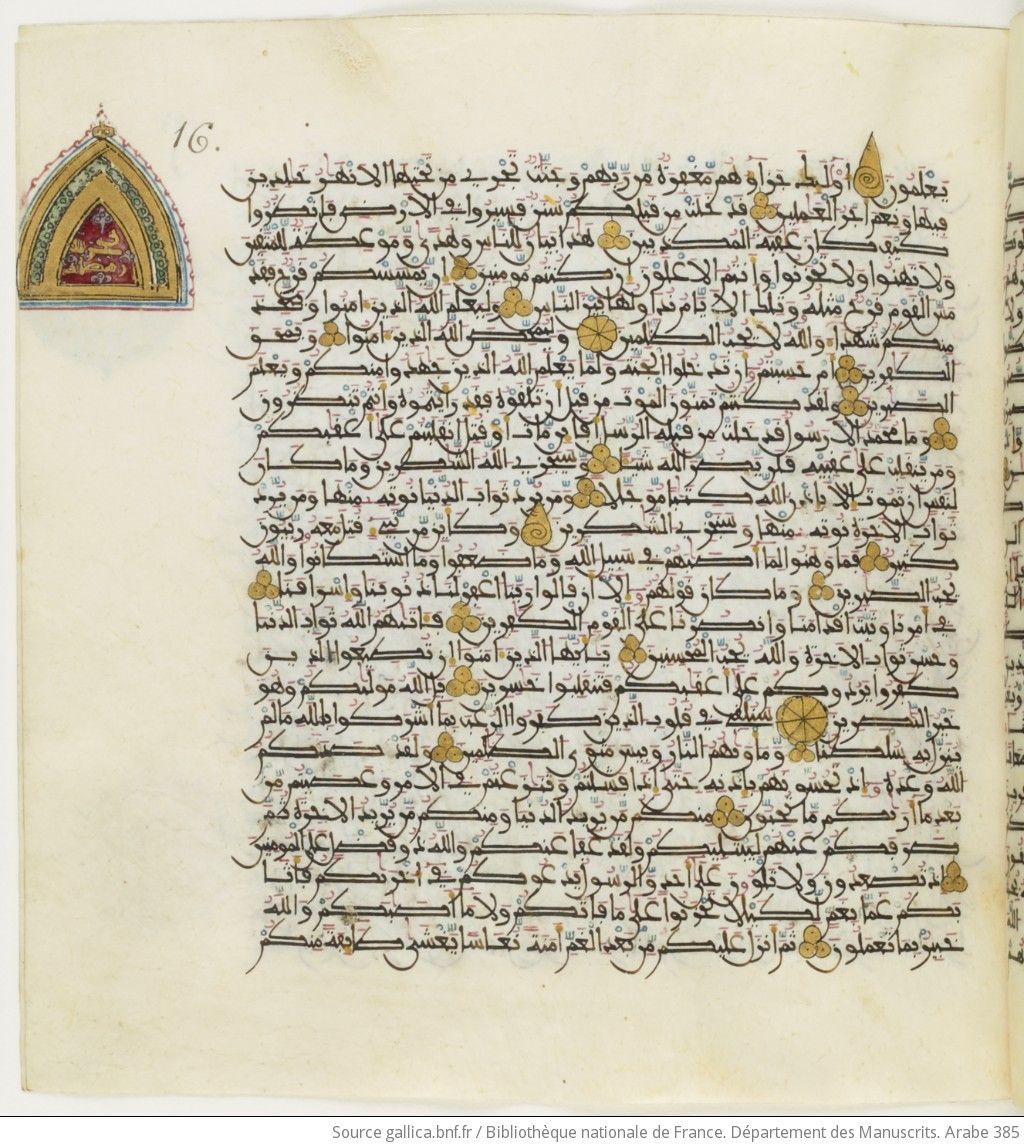 16.
يعلمون اولئك جزاوهم مغفرة من ربهم وجنت تجري من تحتها الانهر خلدين
فيها ونعم اجر العملين قد خلت من قبلكم سنن فسيروا في الارض فانظروا
كيف كان عقبة المكذبين هذا بيان للناس وهدى وموعظة للمتقين
ولا تهنوا ولا تحزنوا وانتم الاعلون ان كنتم مومنين ان يمسسكم قرح فقد
مس القوم قرح مثله وتلك الايام نداولها بين الناس وليعلم الله الذين امنوا ويتخذ
منكم شهداء والله لا يحب الظلمين وليمحص الله الذين امنوا ويمحق
الكفرين ام حسبتم ان تدخلوا الجنة ولما يعلم الله الذين جهدوا منكم ويعلم
الصبرين ولقد كنتم تمنون الموت من قبل ان تلقوه فقد رايتموه وانتم تنظرون
وما محمد الا رسول قد خلت من قبله الرسل افاين مات او قتل انقلبتم على اعقبكم
ومن ينقلب على عقبيه فلن يضر الله شيئا وسيجزي الله الشكرين وما كان
لنفس ان تموت الا باذن الله كتبا موجلا ومن يرد ثواب الدنيا نوته منها ومن يرد
ثواب الاخرة نوته منها وسنجزي الشكرين وكاين من نبيء قتل معه ربيون
كثير فما وهنوا لما اصبهم في سبيل الله وما ضعفوا وما استكانوا والله
يحب الصبرين وما كان قولهم الا ان قالوا ربنا اغفر لنا ذنوبنا واسرافنا
في امرنا وثبت اقدامنا وانصرنا على القوم الكفرين فاتيهم الله ثواب الدنيا
وحسن ثواب الاخرة والله يحب المحسنين يايها الذين امنوا ان تطيعوا الذين
كفروا يردوكم على اعقبكم فتنقلبوا خسرين بل الله موليكم وهو
خير النصرين سنلقي في قلوب الذين كفروا الرعب بما اشركوا بالله ما لم
ينزل به سلطنا وماويهم النار وبيس مثوى الظلمين ولقد صدقكم
الله وعده اذ تحسونهم باذنه حتى اذا فشلتم وتنزعتم في الامر وعصيتم من
بعد ما اريكم ما تحبون منكم من يريد الدنيا ومنكم من يريد الاخرة ثم
صرفكم عنهم ليبتليكم ولقد عفا عنكم والله ذو فضل على المومنين
اذ تصعدون ولا تلون على احد والرسول يدعوكم في اخريكم فاثا
بكم غما بغم لكيلا تحزنوا على ما فاتكم ولا ما اصبكم والله
خبير بما تعملون ثم انزل عليكم من بعد الغم امنة نعاسا يغشى طايفة منكم
Source gallica.bnf.fr / Bibliothèque nationale de France. Département des Manuscrits. Arabe 385